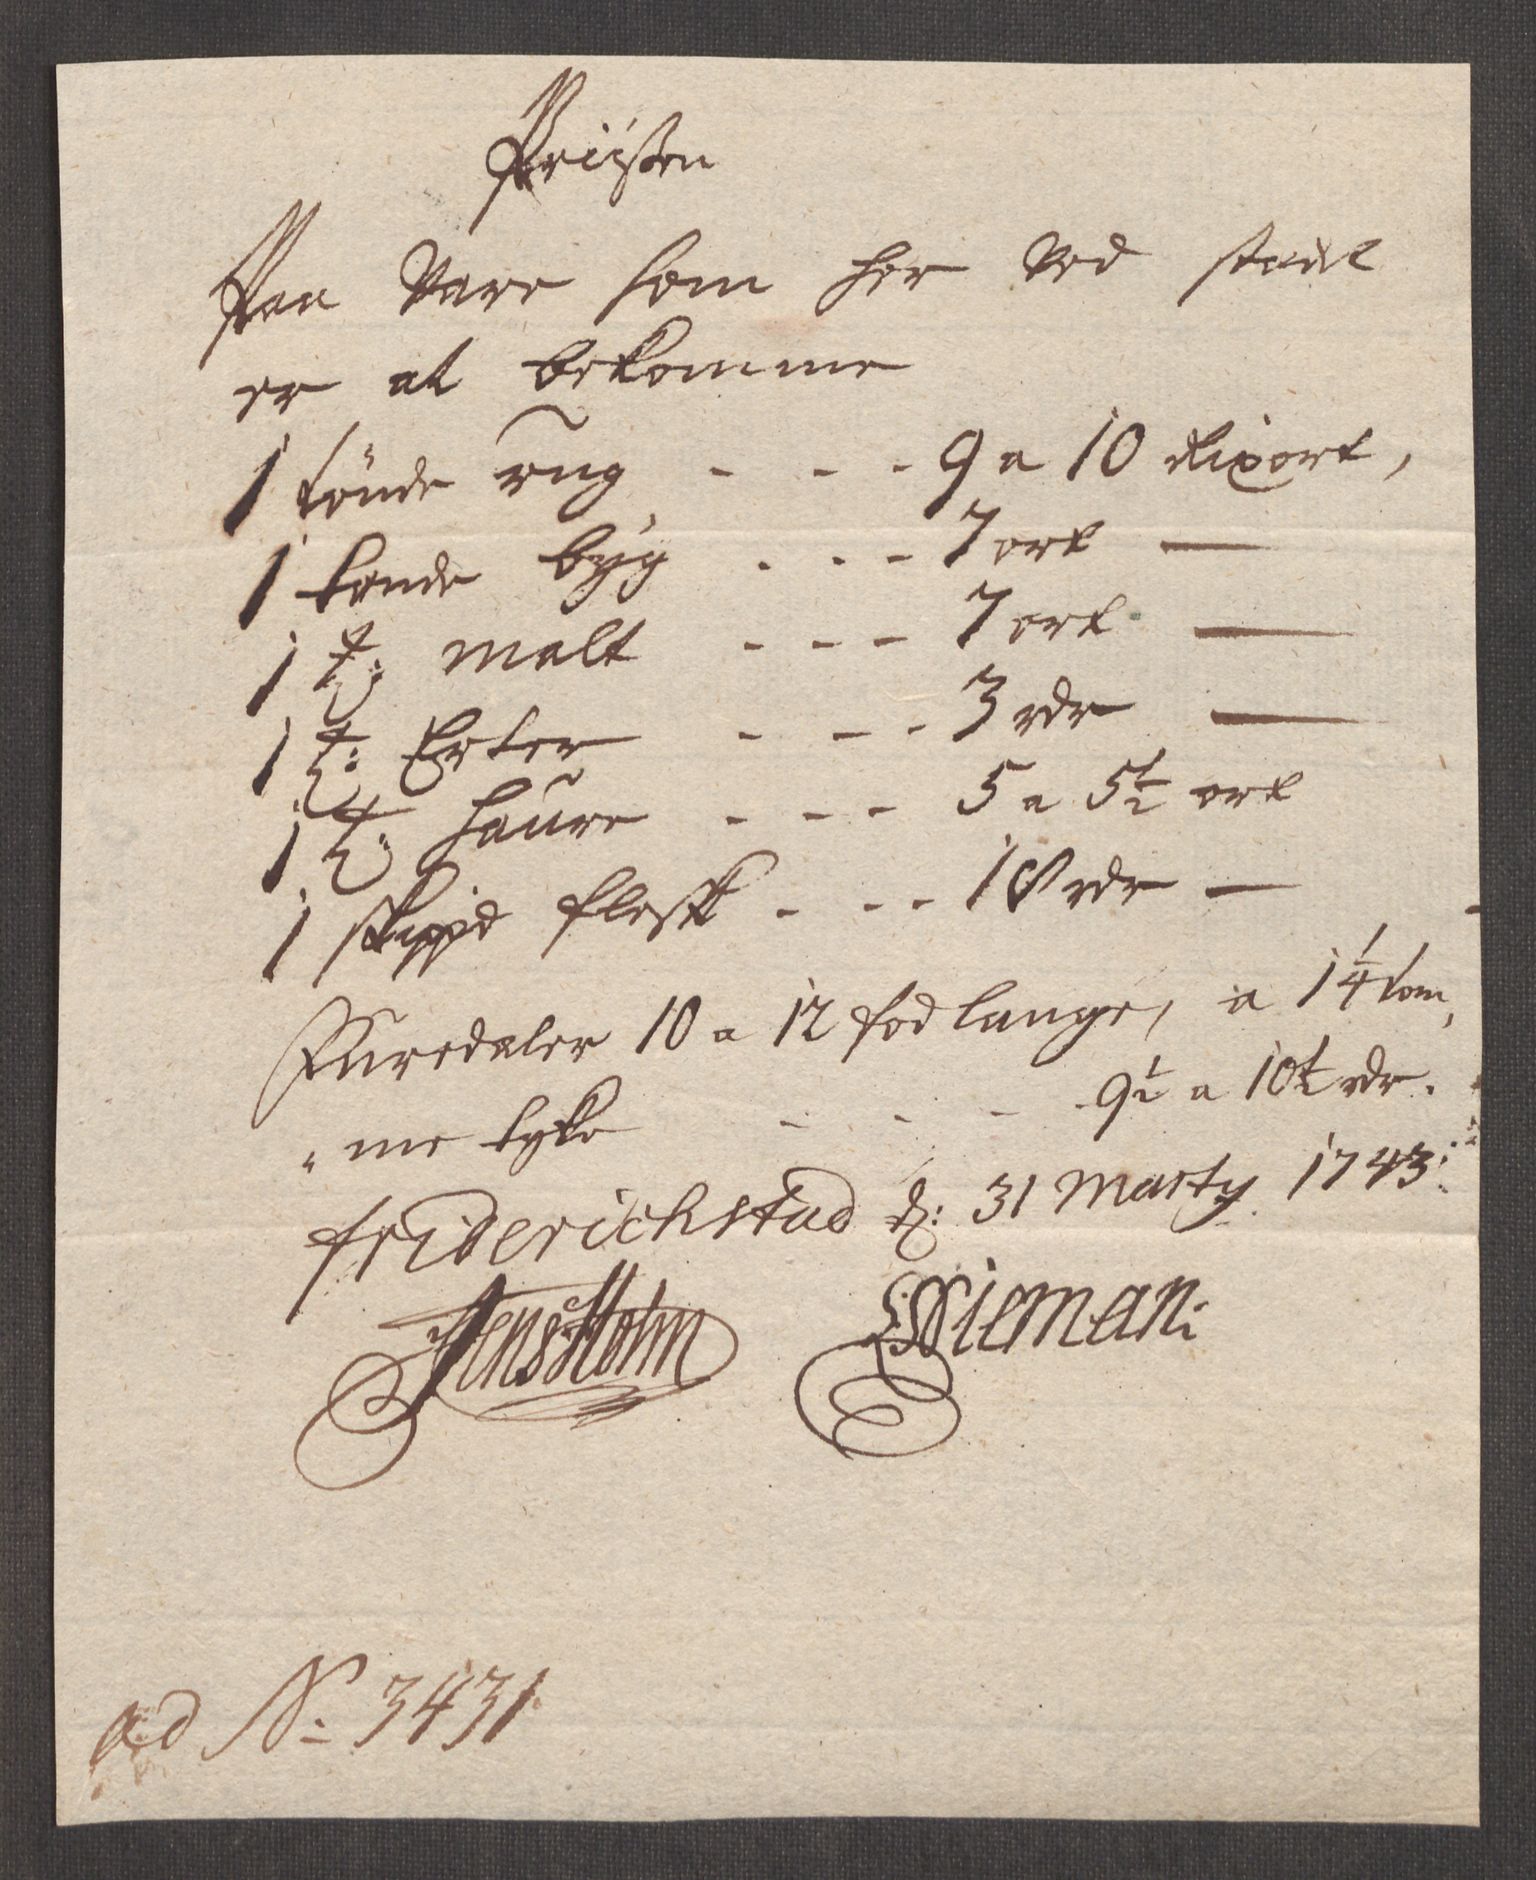 Priissen
Paa Vare som her Ved stædet
er at bekomme
1 tønde rug - - - 9 a 10 Rixort,
1 tønde byg - - - 7 ort —
1 t: malt - - - 7 ort —
1 t: Erter - - - 3 rdr —
1 t: haure - - - 5 a 5½ ort
1 skippd flesk - - - 10 rdr —
Furedaler 10 a 12 fod lange, a 1¼ tom,
" me tyke - - - 9½ a 10½ rdr.
friderichstad d: 31 Marty 1743:
Jens Holm Wieman:
ad No: 3431